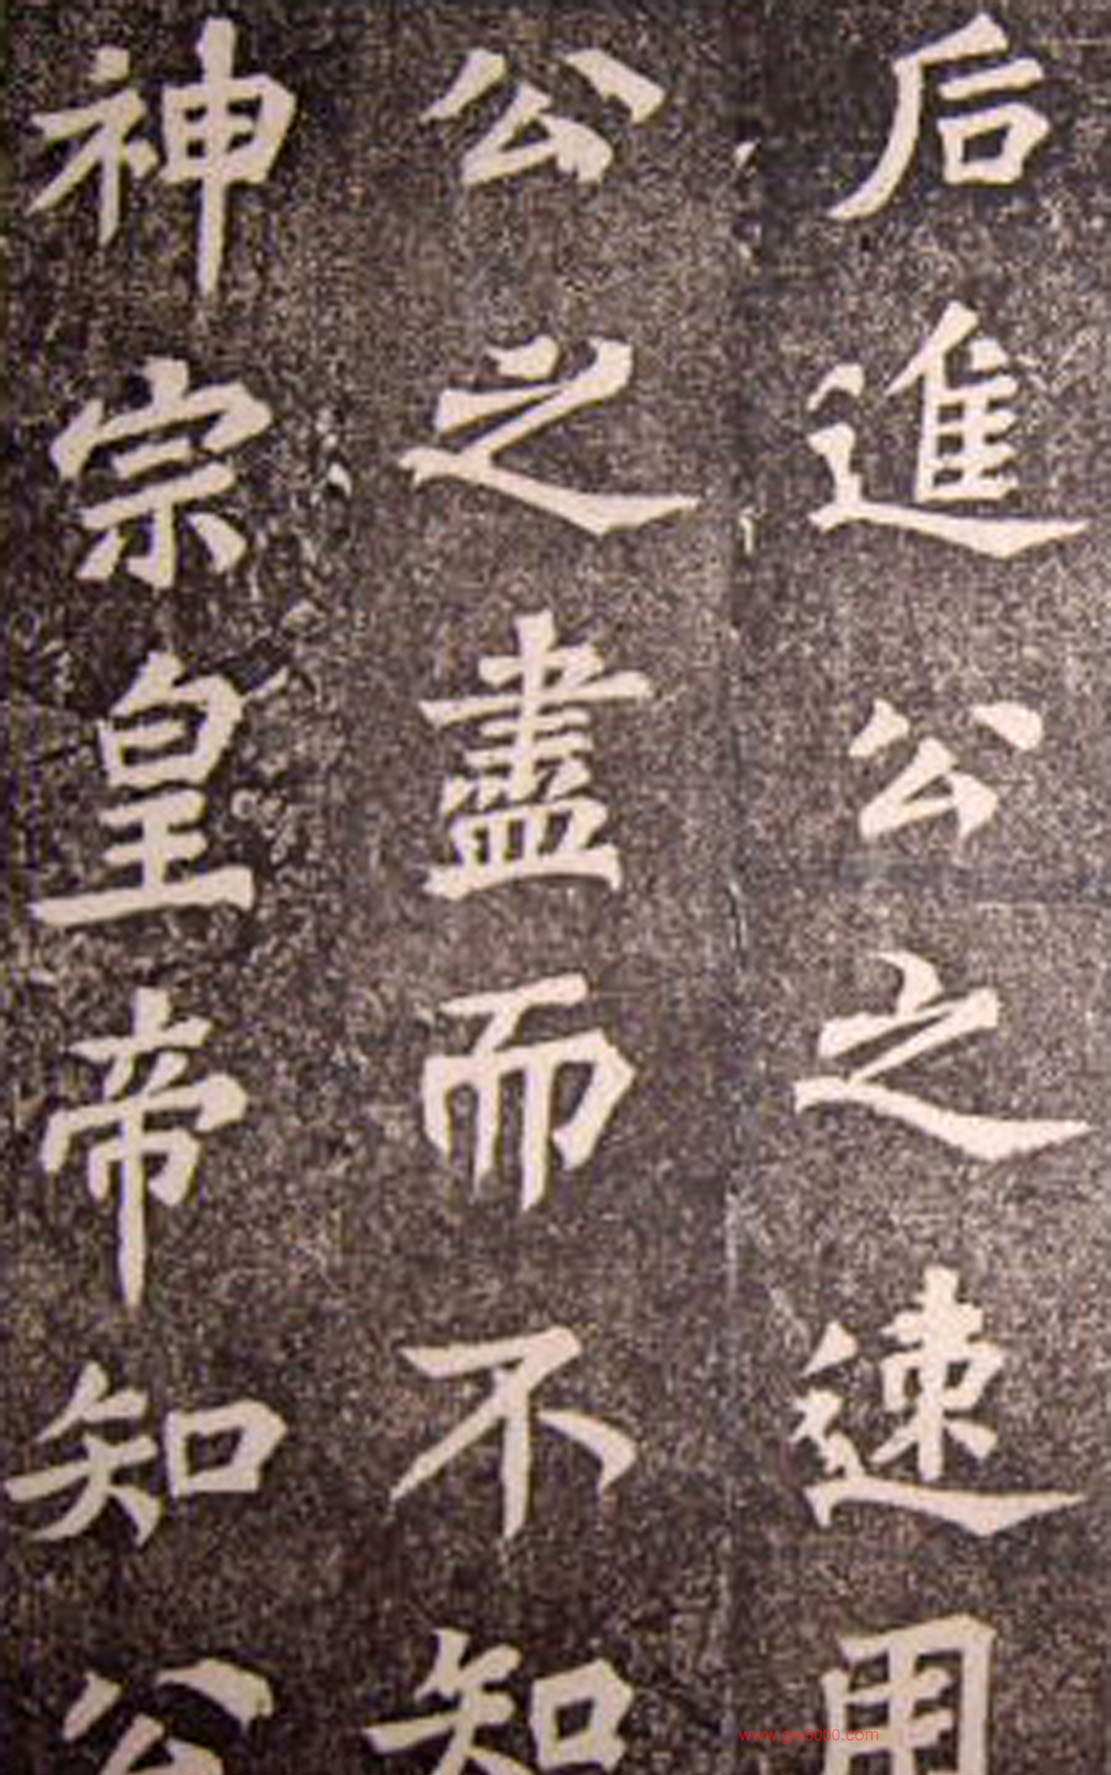 后進公之速用
公之盡而不知
神宗皇帝知公
www.gws000.com